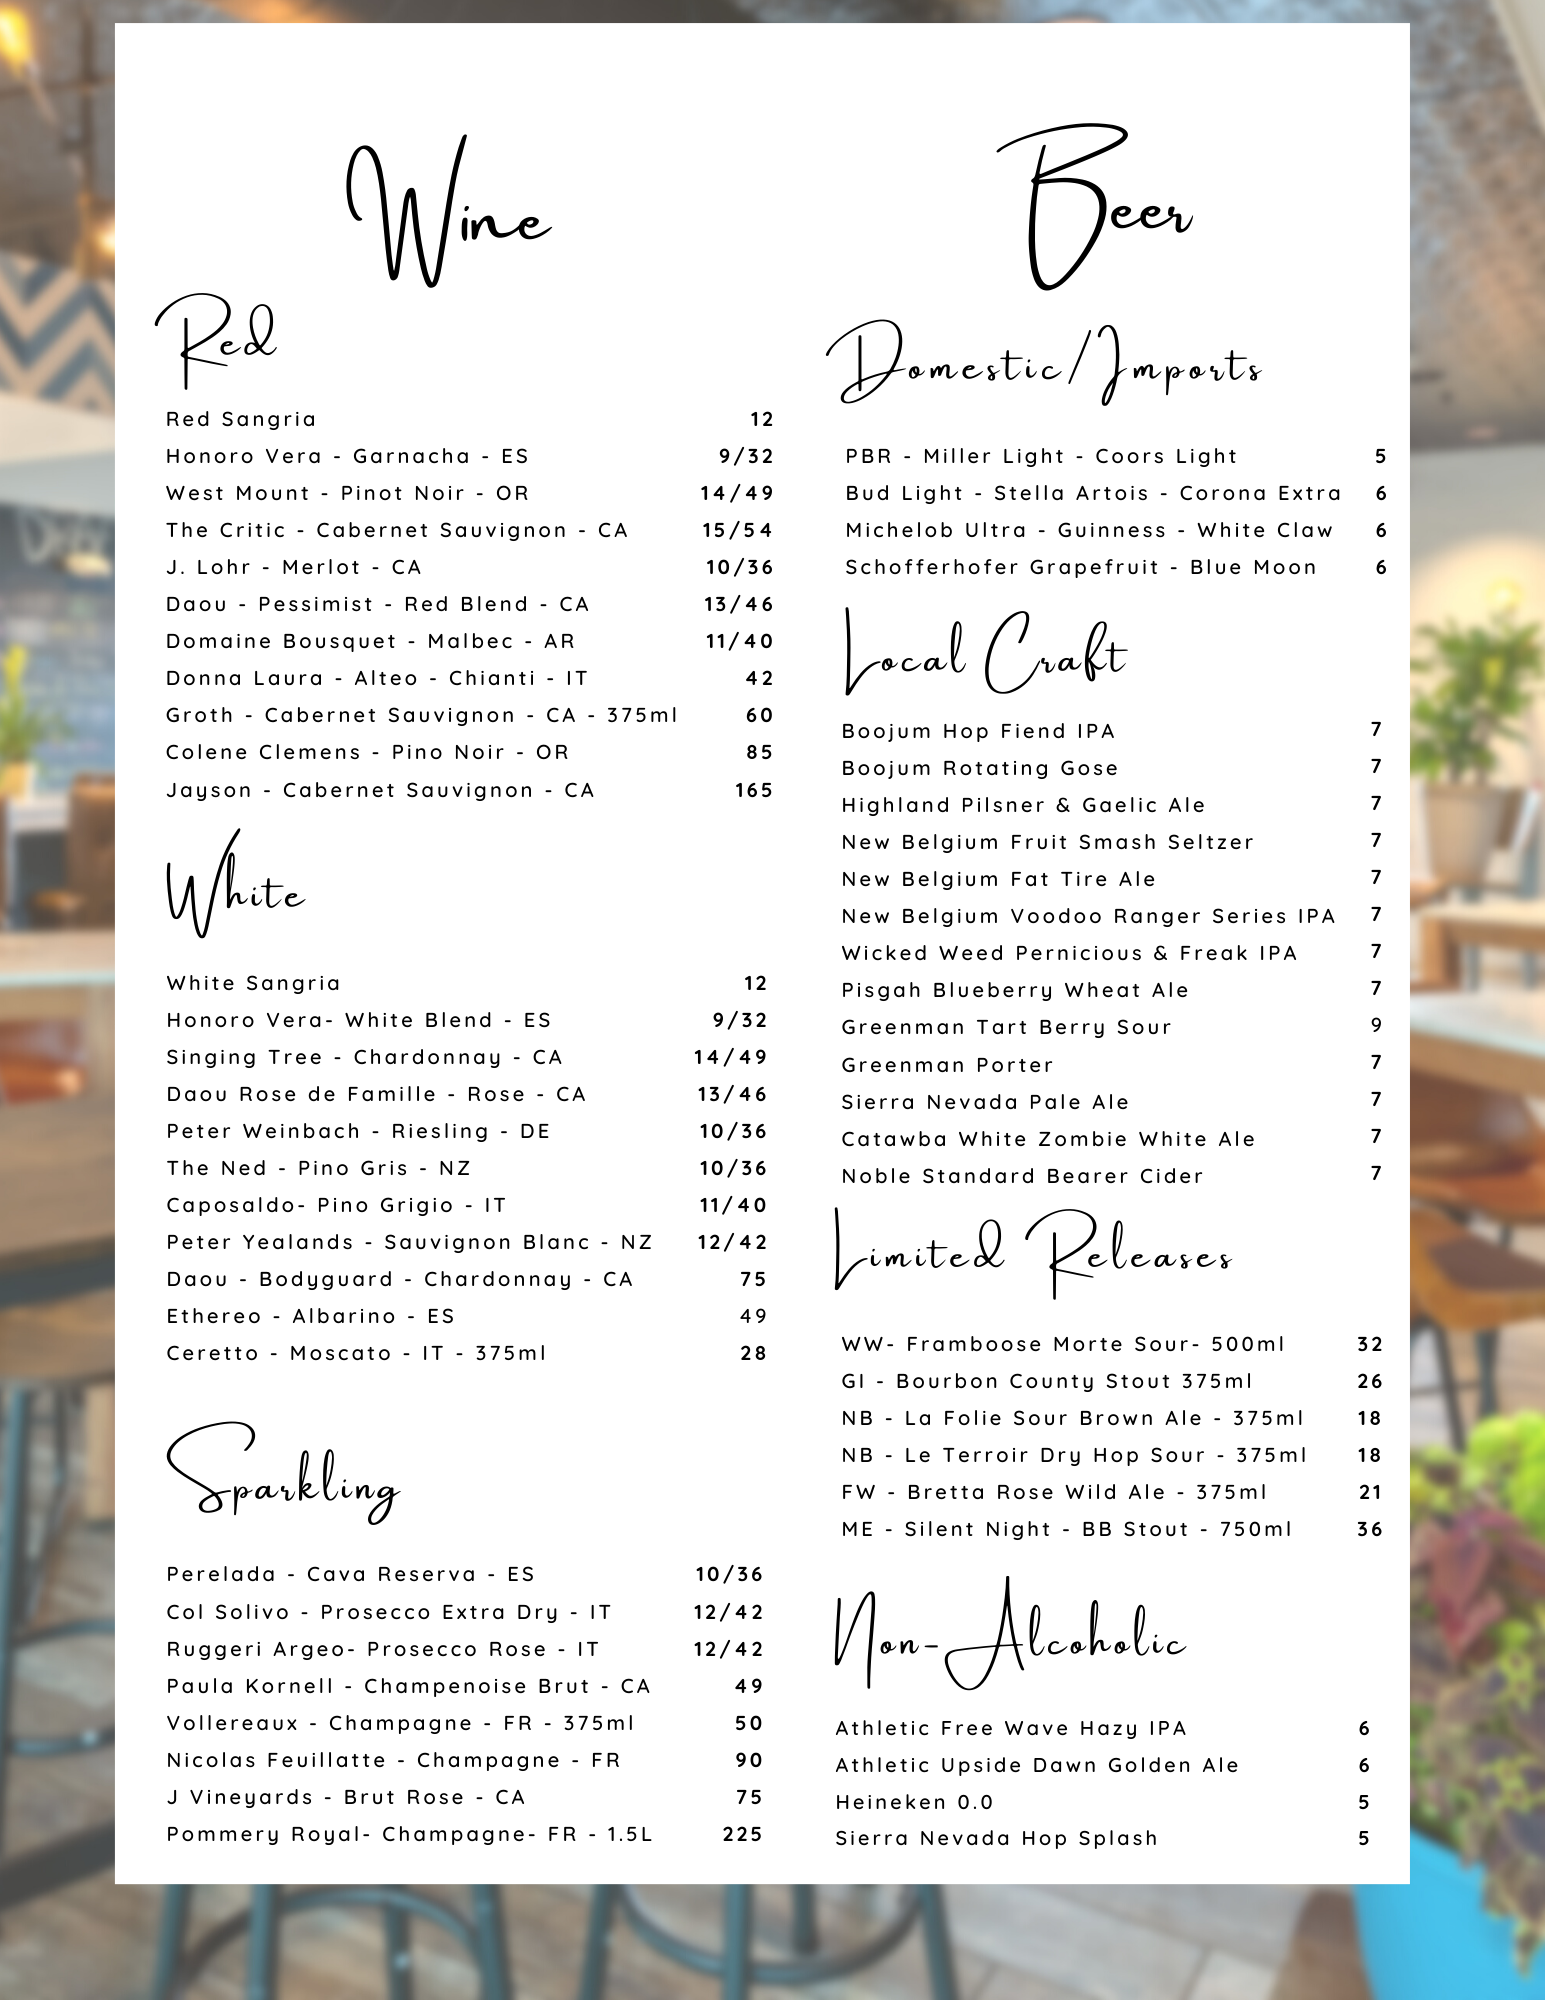 Wine
Red
Red Sangria 12
Honoro Vera - Garnacha - ES 9/32
West Mount - Pinot Noir - OR 14/49
The Critic - Cabernet Sauvignon - CA 15/54
J. Lohr - Merlot - CA 10/36
Daou - Pessimist - Red Blend - CA 13/46
Domaine Bousquet - Malbec - AR 11/40
Donna Laura - Alteo - Chianti - IT 42
Groth - Cabernet Sauvignon - CA - 375ml 60
Colene Clemens - Pino Noir - OR 85
Jayson - Cabernet Sauvignon - CA 165
White
White Sangria 12
Honoro Vera- White Blend - ES 9/32
Singing Tree - Chardonnay - CA 14/49
Daou Rose de Famille - Rose - CA 13/46
Peter Weinbach - Riesling - DE 10/36
The Ned - Pino Gris - NZ 10/36
Caposaldo- Pino Grigio - IT 11/40
Peter Yealands - Sauvignon Blanc - NZ 12/42
Daou - Bodyguard - Chardonnay - CA 75
Ethereo - Albarino - ES 49
Ceretto - Moscato - IT - 375ml 28
Sparkling
Perelada - Cava Reserva - ES 10/36
Col Solivo - Prosecco Extra Dry - IT 12/42
Ruggeri Argeo- Prosecco Rose - IT 12/42
Paula Kornell - Champenoise Brut - CA 49
Vollereaux - Champagne - FR - 375ml 50
Nicolas Feuillatte - Champagne - FR 90
J Vineyards - Brut Rose - CA 75
Pommery Royal- Champagne- FR - 1.5L 225
Beer
Domestic/Imports
PBR - Miller Light - Coors Light 5
Bud Light - Stella Artois - Corona Extra 6
Michelob Ultra - Guinness - White Claw 6
Schofferhofer Grapefruit - Blue Moon 6
Local Craft
Boojum Hop Fiend IPA 7
Boojum Rotating Gose 7
Highland Pilsner & Gaelic Ale 7
New Belgium Fruit Smash Seltzer 7
New Belgium Fat Tire Ale 7
New Belgium Voodoo Ranger Series IPA 7
Wicked Weed Pernicious & Freak IPA 7
Pisgah Blueberry Wheat Ale 7
Greenman Tart Berry Sour 9
Greenman Porter 7
Sierra Nevada Pale Ale 7
Catawba White Zombie White Ale 7
Noble Standard Bearer Cider 7
Limited Releases
WW- Framboose Morte Sour- 500ml 32
GI - Bourbon County Stout 375ml 26
NB - La Folie Sour Brown Ale - 375ml 18
NB - Le Terroir Dry Hop Sour - 375ml 18
FW - Bretta Rose Wild Ale - 375ml 21
ME - Silent Night - BB Stout - 750ml 36
Non-Alcoholic
Athletic Free Wave Hazy IPA 6
Athletic Upside Dawn Golden Ale 6
Heineken 0.0 5
Sierra Nevada Hop Splash 5